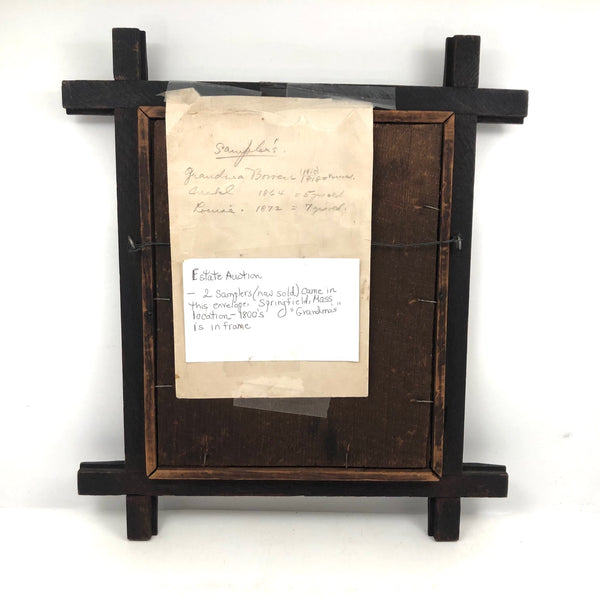 Sampler's.
Grandma Bowen
1864 = 5 yrs old
Louisa. 1872 = 7 yrs old.
Estate Auction
- 2 Samplers (now sold) came in
this envelope. Springfield, Mass
location - 1800's "Grandma"
is in frame